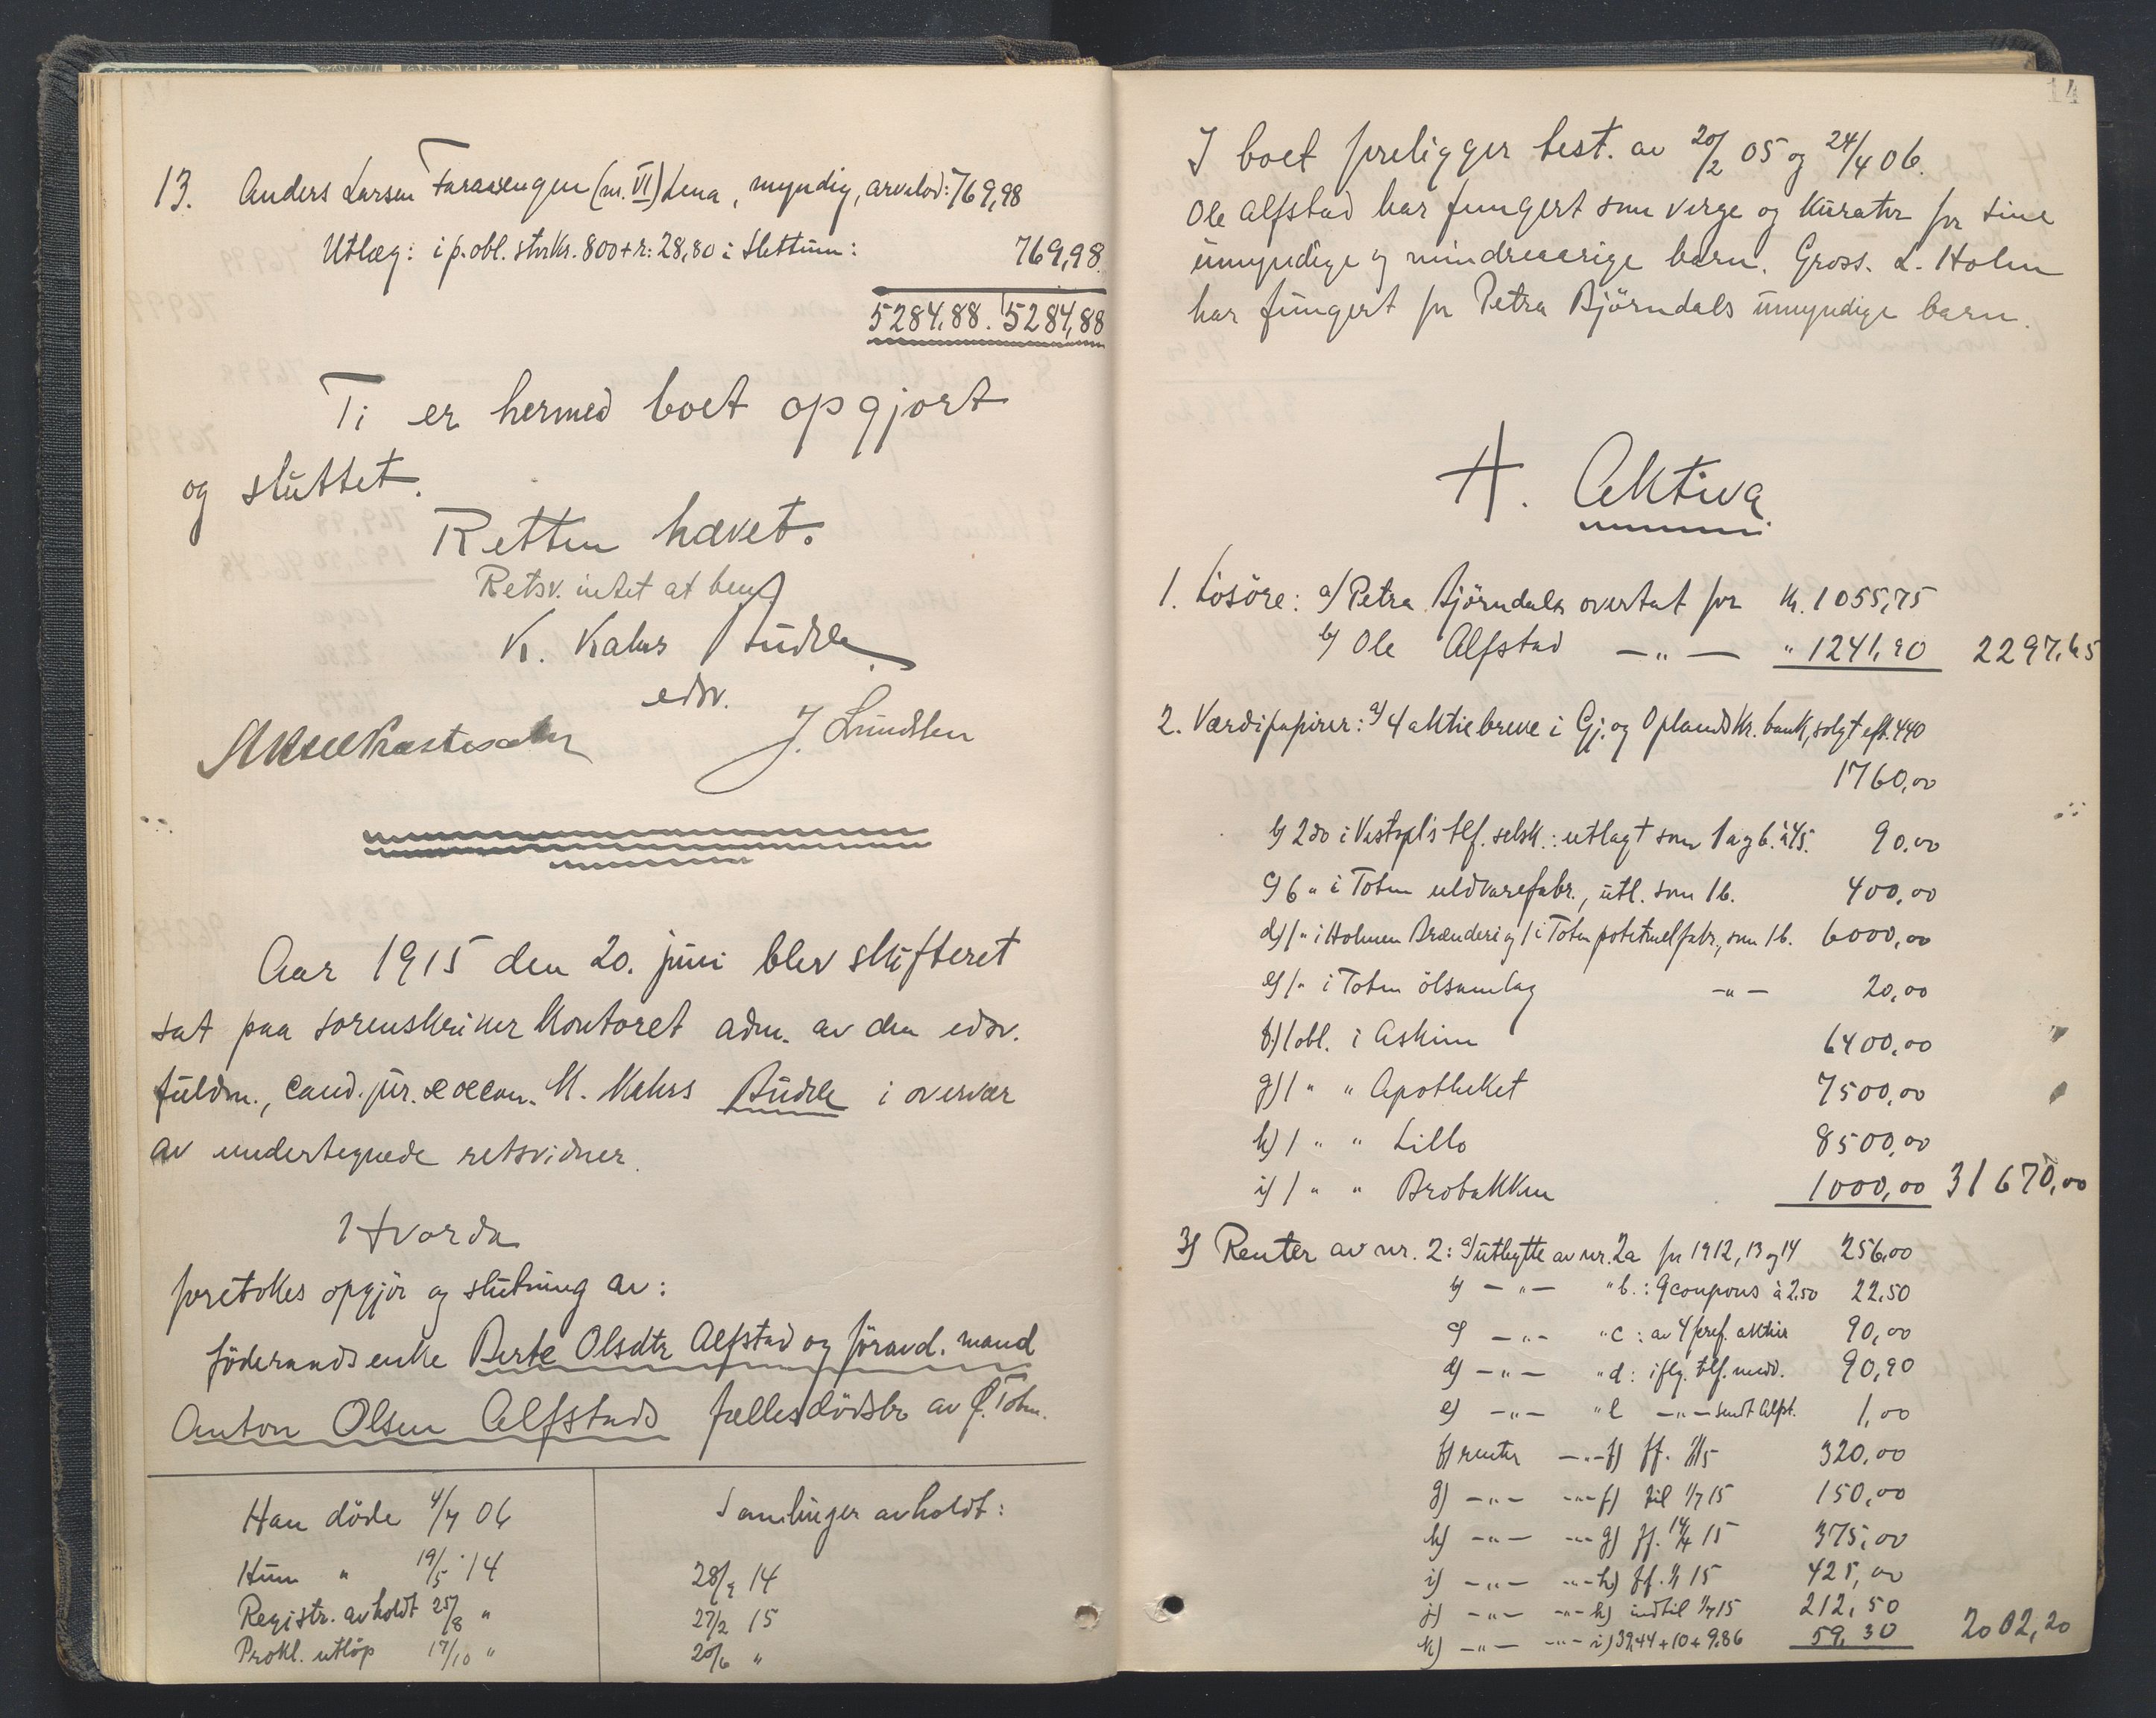 13. Anders Larsen Faraasengen (m. VI) Lena, myndig, arvelod: 769,98
Utlæg: i p. obl. stor kr. 800 + r: 28,80 i Slettum: 769,98.
5284,88. 5284,88
Ti er hermed boet opgjort
og sluttet.
Retten hævet.
Retsv. intet at bem.
K. Kahrs Budde
edsv.
J. Lundsten
Aar 1915 den 20. juni blev skifteret
sat paa sorenskriver kontoret adm. av den edsv.
fuldm., cand. jur. & oecon. K. Kahrs Budde i overvær
av undertegnede retsvidner.
Hvorda
foretokes opgjör og slutning av:
föderaadsenke Berte Olsdtr Alfstad og föravd. mand
Anton Olsen Alfstads fælles dödsbo av Ö. Toten.
Han döde 4/7 06
Hun " 19/5 14
Registr. avholdt 25/8 "
Prokl. utløp 17/10 "
Samlinger avholdt:
28/9 14
27/2 15
20/6 "
14
I boet foreligger test. av 20/2 05 og 24/4 06.
Ole Alfstad har fungert som verge og kurator for sine
umyndige og mindreaarige barn. Gross. L. Holm
har fungert for Petra Björndals umyndige barn.
A. Aktiva
1. Lösöre: a) Petra Björndalen overtat for kr. 1055,75
b) Ole Alfstad — " — " 1241,90 2297,65
2. Værdipapirer: a) 4 aktiebreve i Gj. og Oplands kr. bank, solgt eft. 440
1760,00
b) 2 do i Vestopl's tlf. selsk.: utlagt som 1 a og b. à 45. 90,00
c) 6 " i Toten uldvarefabr., utl. som 1 b. 400,00
d) 1 " i Holmen Brænderi og 1 i Toten potetmelfabr., som 1 b. 6000,00
e) 1 " i Toten ölsamlag — " — 20,00
f) 1 obl. i Askim 6400,00
g) 1 " " Apotheket 7500,00
h) 1 " " Lillo 8500,00
i) 1 " " Brobakken 1000,00 31670,00
3) Renter av nr. 2: a) utbytte av nr. 2a for 1912, 13 og 14 256,00
b) — " — " b.: 9 coupons à 2.50 22,50
c) — " — " c: av 4 pref. aktier 90,00
d) — " — " d: iflg. tlf. medd. 90,90
e) — " — " e — " — sendt Alfst. 1,00
f) renter — " — f) ff. 1/1 15 320,00
g) — " — — " — f) til 1/7 15 150,00
h) — " — — " — g) ff. 14/4 15 375,00
i) — " — — " — h) ff. 1/1 15 425,00
j) — " — — " — h) indtil 1/7 15 212,50
k) — " — — " — i) 39,44 + 10 + 9,86 59,30 2002,20